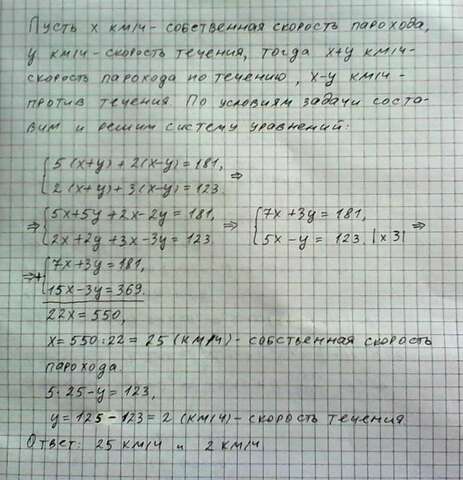 Пусть x км/ч - собственная скорость парохода,
y км/ч - скорость течения, тогда x+y км/ч -
скорость парохода по течению, x-y км/ч -
против течения. По условиям задачи соста-
вим и решим систему уравнений:
{5(x+y) + 2(x-y) = 181, ⇒
{2(x+y) + 3(x-y) = 123.
⇒ {5x+5y+2x-2y = 181, ⇒ {7x+3y = 181, ⇒
{2x+2y+3x-3y = 123. {5x-y = 123. |x3|
⇒ + {7x+3y = 181,
{15x-3y = 369.
22x = 550,
x = 550:22 = 25 (км/ч) - собственная скорость
парохода.
5·25-y = 123,
y = 125-123 = 2 (км/ч) - скорость течения
Ответ: 25 км/ч и 2 км/ч